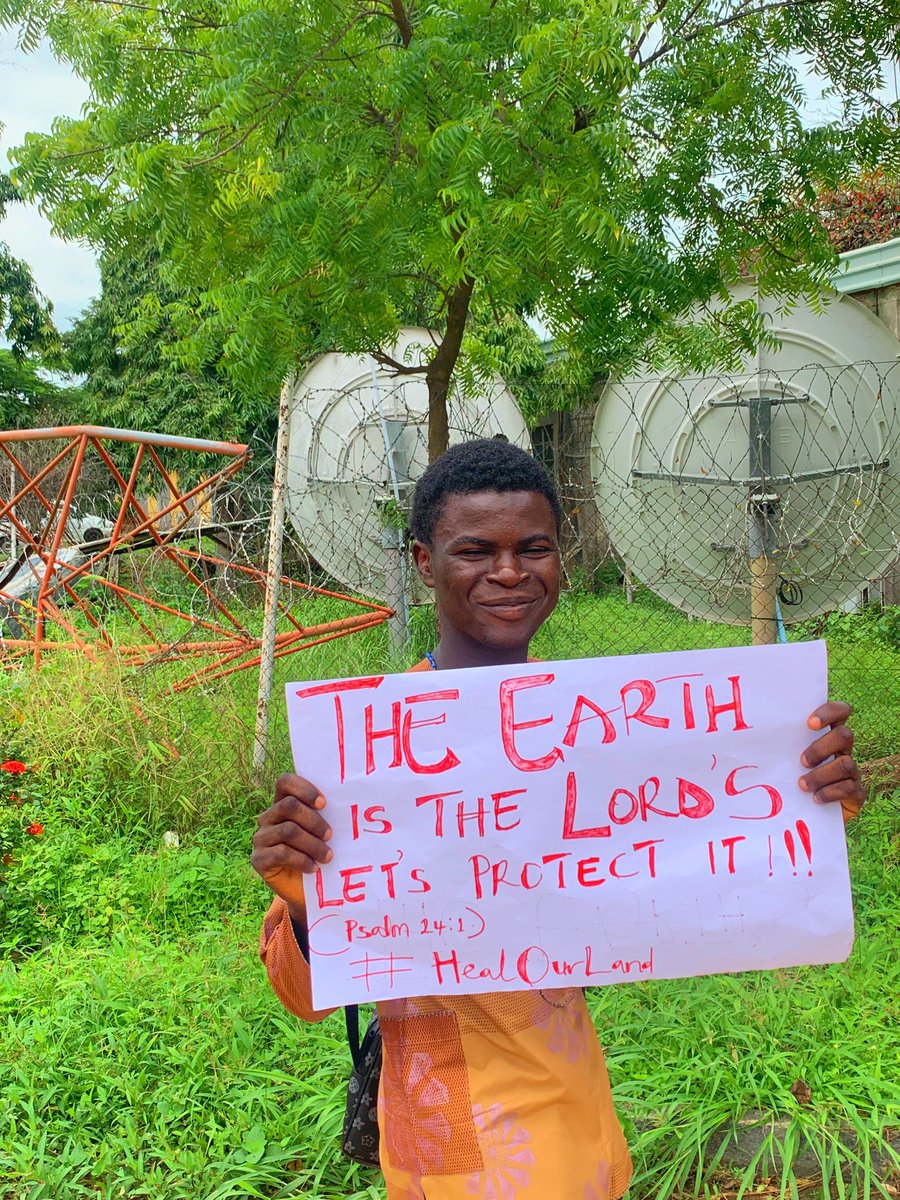 THE EARTH
IS THE LORD'S
LET'S PROTECT IT!!!
(Psalm 24:1)
# HealOurLand